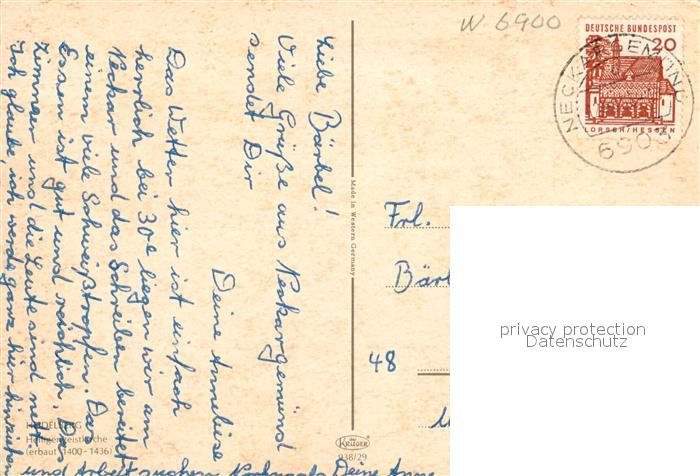 W 6900
DEUTSCHE BUNDESPOST
20
LORSCH/HESSEN
NECKARGEMÜND
6903
Liebe Bärbel!
Viele Grüße aus Neckargemünd
sendet Dir
Deine Anneliese
Das Wetter hier ist einfach
herrlich bei 30° liegen wir am
Neckar und das Schreiben bereitet
einem viele Schweißtropfen. Das
Essen ist gut und reichlich. Das
Zimmer und die Leute sind nett.
Ich glaube, ich werde ganz hier hinziehen
und Arbeit suchen Nochmals Deine Anne
Made in Western Germany
Frl.
Bärb
48
HEIDELBERG
Heiliggeistkirche
(erbaut 1400 - 1436)
KRÜGER
938/29
privacy protection
Datenschutz